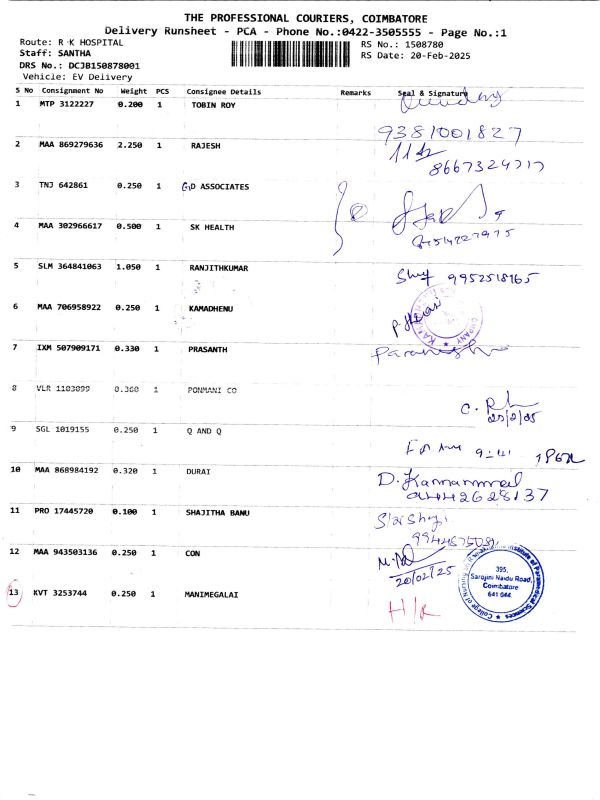 THE PROFESSIONAL COURIERS, COIMBATORE
Delivery Runsheet - PCA - Phone No.:0422-3505555 - Page No.:1
Route: R K HOSPITAL
RS No.: 1508780
Staff: SANTHA
RS Date: 20-Feb-2025
DRS No.: DCJB150878001
Vehicle: EV Delivery
S No Consignment No Weight PCS Consignee Details Remarks Seal & Signature
1 MTP 3122227 0.200 1 TOBIN ROY
9381001827
2 MAA 869279636 2.250 1 RAJESH
8667324717
3 TNJ 642861 0.250 1 G.D ASSOCIATES
4 MAA 302966617 0.500 1 SK HEALTH
5 SLM 364841063 1.050 1 RANJITHKUMAR
9952518165
6 MAA 706958922 0.250 1 KAMADHENU
7 IXM 507909171 0.330 1 PRASANTH
8 VLR 1103099 0.360 1 PONMANI CO
20/2/25
9 SGL 1019155 0.250 1 Q AND Q
10 MAA 868984192 0.320 1 DURAI
9442628137
11 PRO 17445720 0.100 1 SHAJITHA BANU
12 MAA 943503136 0.250 1 CON
20/02/25
395,
Sarojini Naidu Road,
Coimbatore
641 044.
13 KVT 3253744 0.250 1 MANIMEGALAI